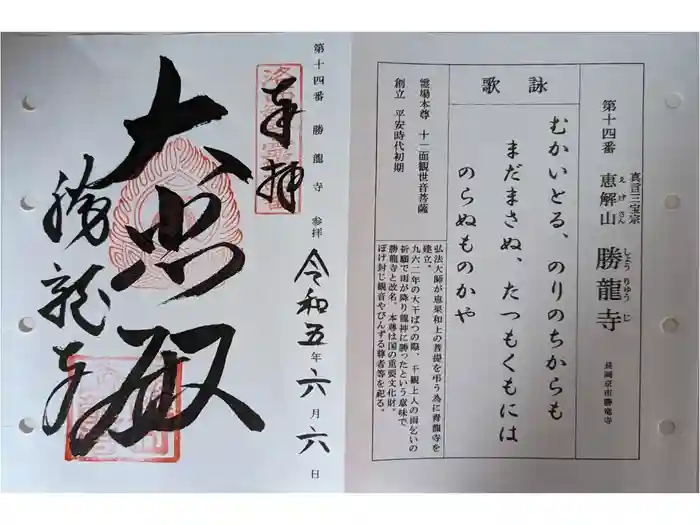 真言三宝宗
第十四番 恵解山 勝龍寺
えげさん しょうりゅうじ
長岡京市勝竜寺
詠歌
むかいとる、のりのちからも
まだまさぬ、たつもくもには
のらぬものかや
霊場本尊 十一面観世音菩薩
創立 平安時代初期
弘法大師が恵果和上の菩提を弔う為に青龍寺を
建立。
九六二年の大干ばつの際、千観上人の雨乞いの
祈願で雨が降り龍神に勝ったという意味で
勝龍寺と改名。本尊は国の重要文化財。
ぼけ封じ観音やびんずる尊者等を祀る。
第十四番 勝龍寺 参拝 令和五年六月六日
奉拝
大悲殿
勝龍寺